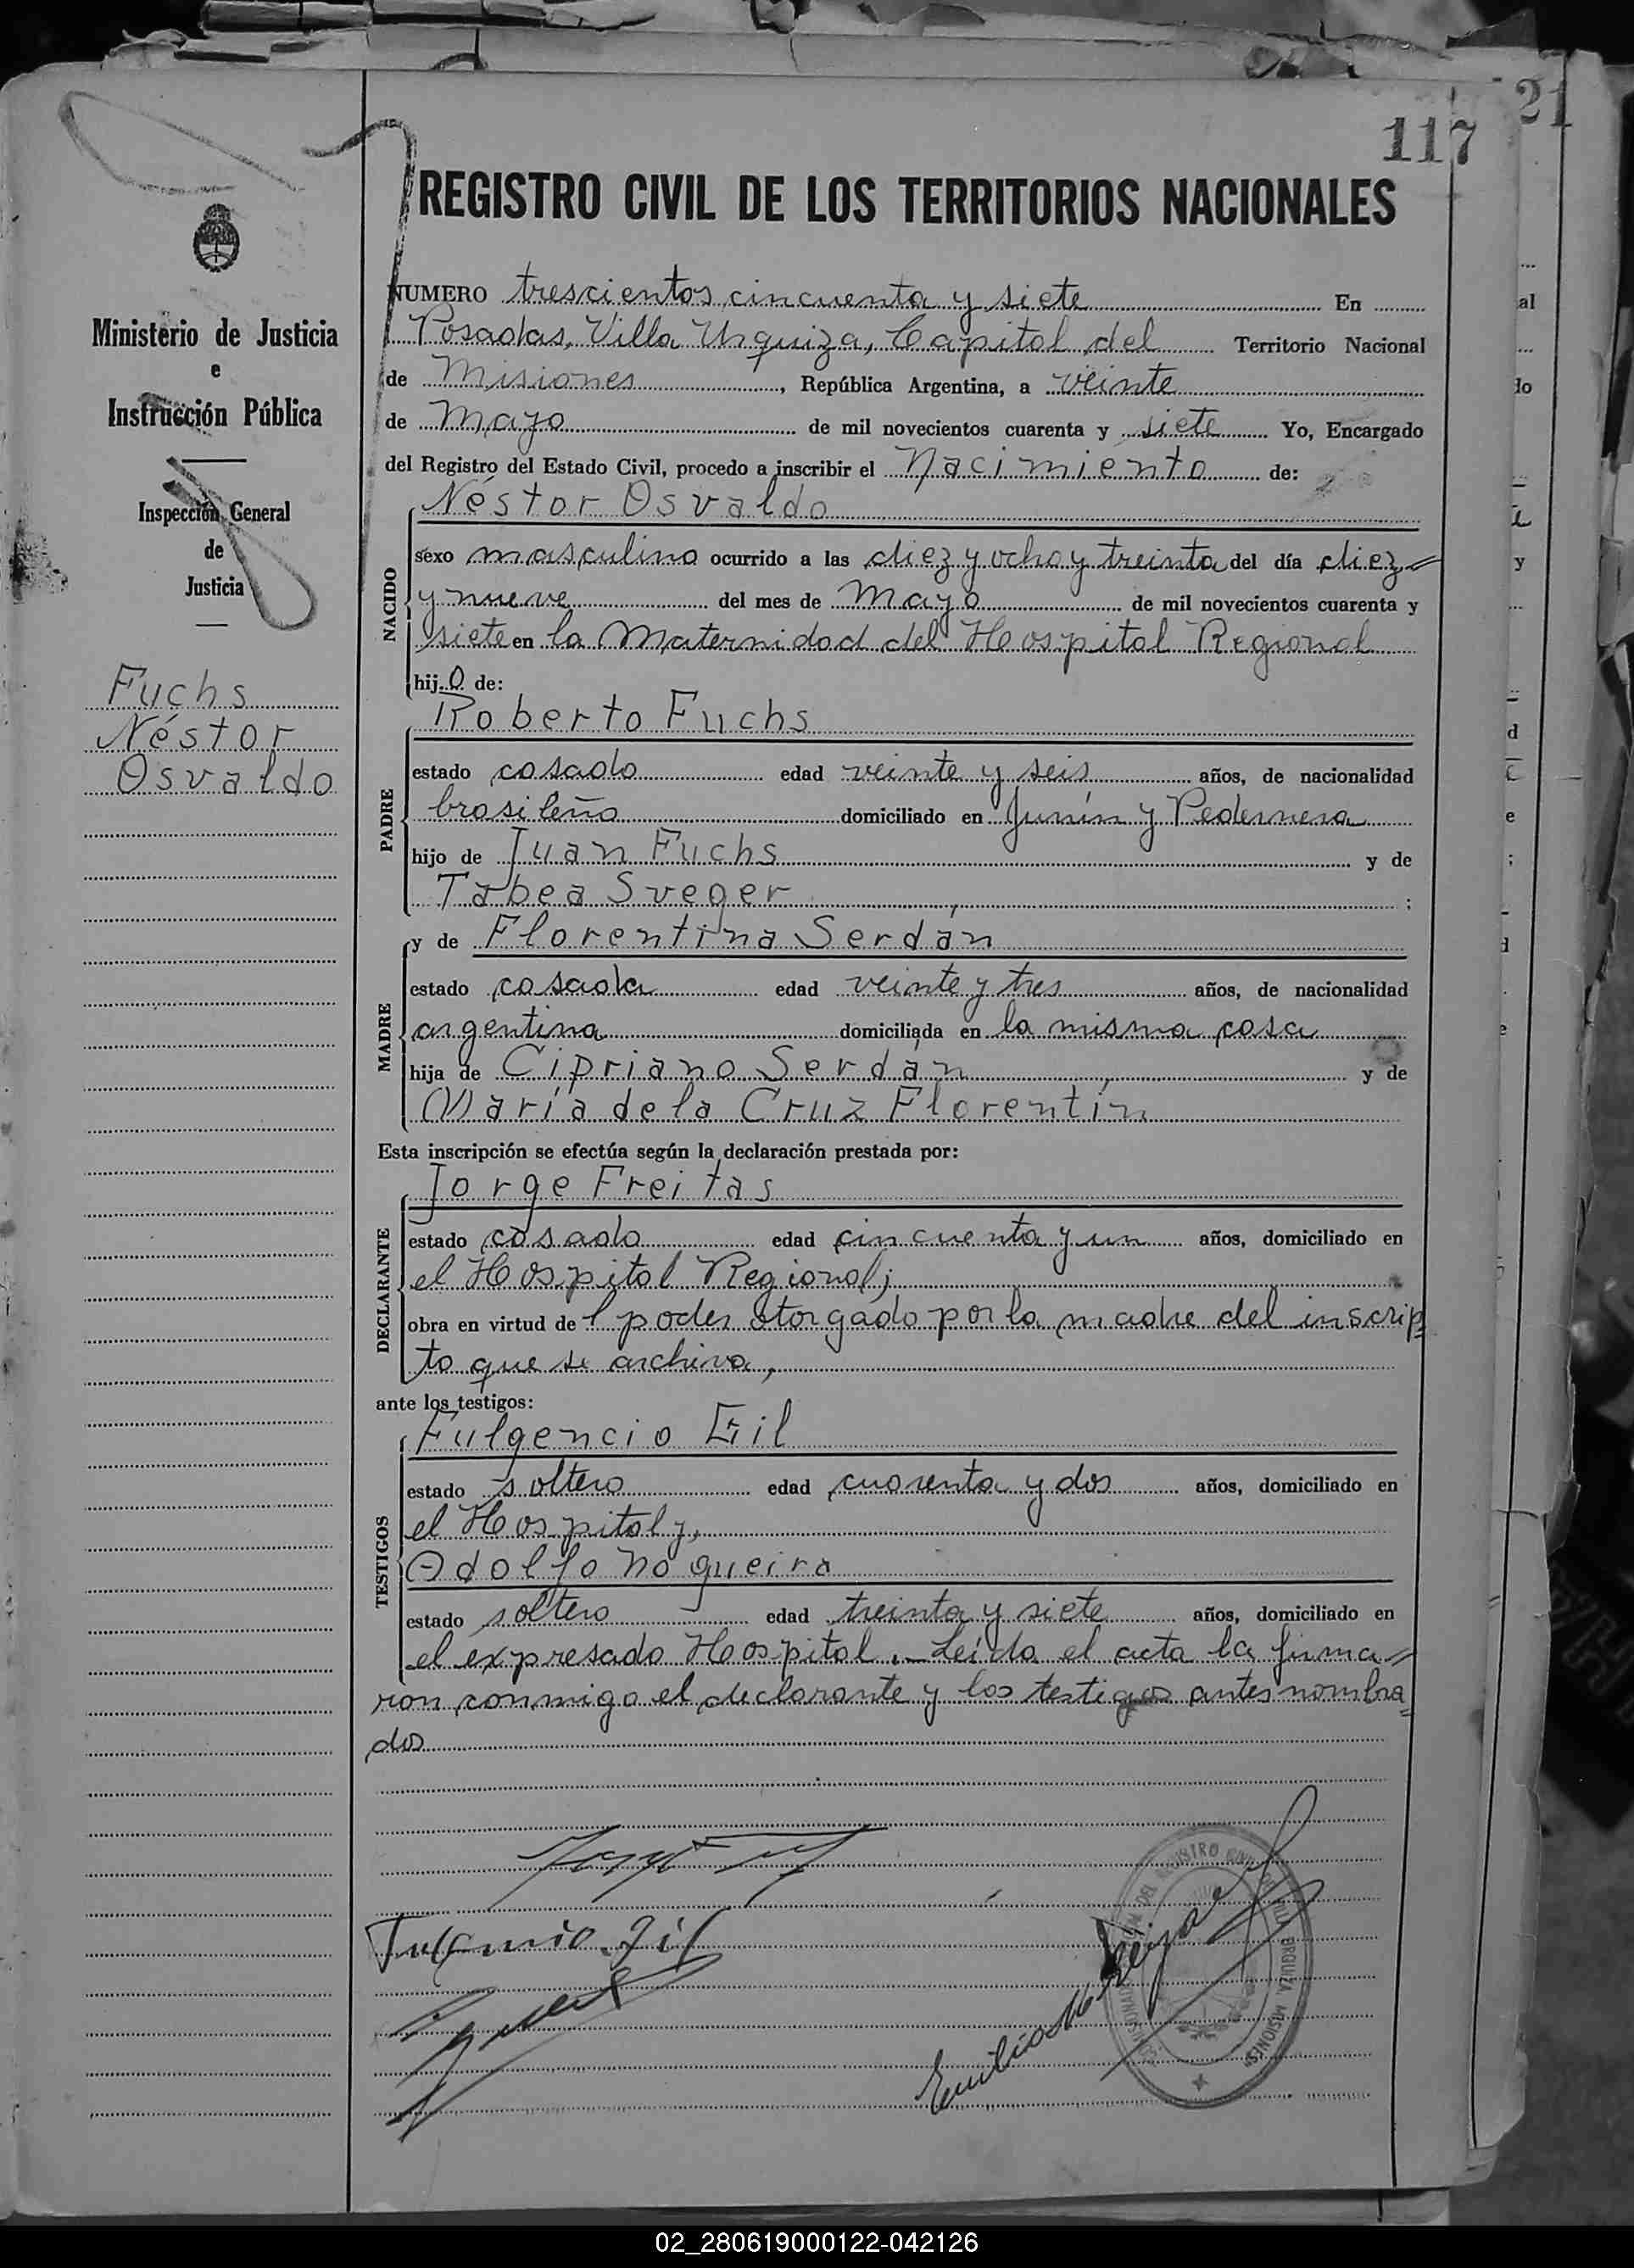 21
117
REGISTRO CIVIL DE LOS TERRITORIOS NACIONALES
Ministerio de Justicia
e
Instrucción Pública
Inspección General
de
Justicia
Fuchs
Néstor
Osvaldo
NUMERO trescientos cincuenta y siete En
Posadas, Villa Urquiza, Capital del Territorio Nacional
de Misiones, República Argentina, a veinte
de Mayo de mil novecientos cuarenta y siete Yo, Encargado
del Registro del Estado Civil, procedo a inscribir el Nacimiento de:
Néstor Osvaldo
NACIDO
sexo masculino ocurrido a las diez y ocho y treinta del día diez=
y nueve del mes de Mayo de mil novecientos cuarenta y
siete en la Maternidad del Hospital Regional
hijo de:
Roberto Fuchs
PADRE
estado casado edad veinte y seis años, de nacionalidad
brasileña domiciliado en Junín y Pedernera
hijo de Juan Fuchs y de
Tabea Sveger;
MADRE
y de Florentina Serdán
estado casada edad veinte y tres años, de nacionalidad
argentina domiciliada en la misma casa
hija de Cipriano Serdán y de
María de la Cruz Florentín
Esta inscripción se efectúa según la declaración prestada por:
Jorge Freitas
DECLARANTE
estado casado edad cincuenta y un años, domiciliado en
el Hospital Regional;
obra en virtud del poder otorgado por la madre del inscrip=
to que se archiva,
ante los testigos:
Fulgencio Gil
TESTIGOS
estado soltero edad cuarenta y dos años, domiciliado en
el Hospital y,
Adolfo Nogueira
estado soltero edad treinta y siete años, domiciliado en
el expresado Hospital.- Leída el acta la firma=
ron conmigo el declarante y los testigos antes nombra=
dos
Emilio
DEL REGISTRO CIVIL DE VILLA URQUIZA, MISIONES
02_280619000122-042126